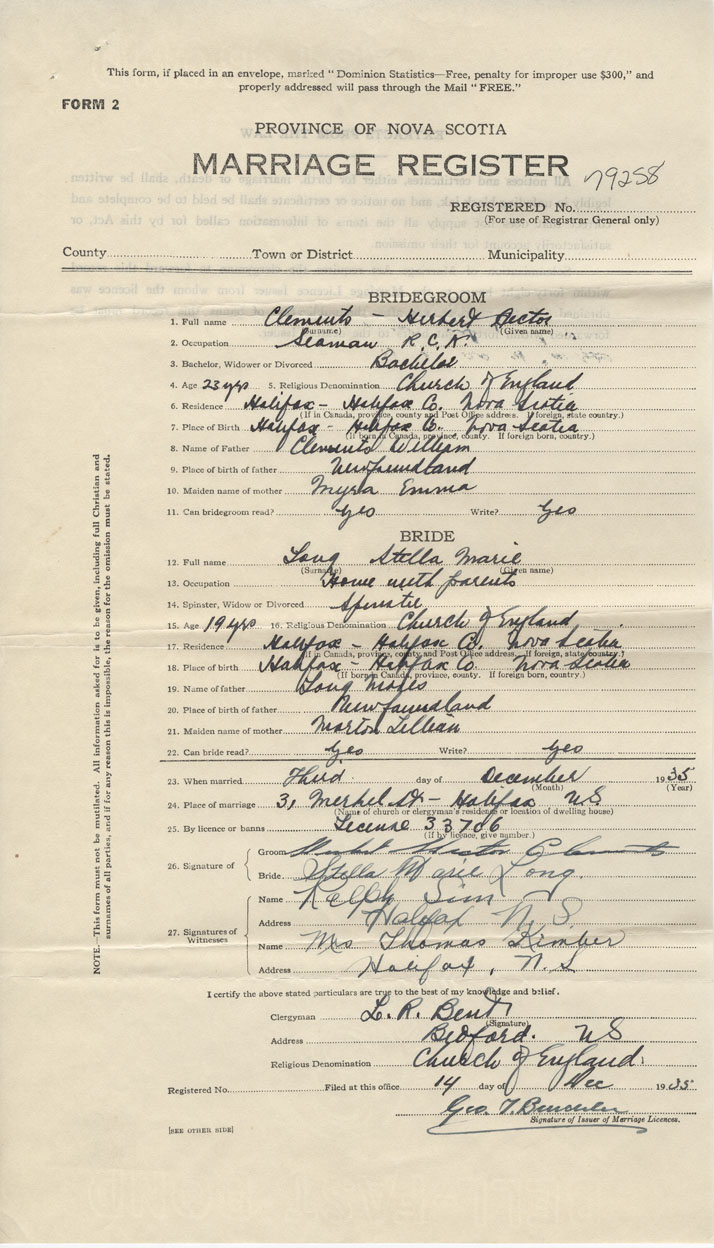 This form, if placed in an envelope, marked "Dominion Statistics—Free, penalty for improper use $300," and
properly addressed will pass through the Mail "FREE."
FORM 2
PROVINCE OF NOVA SCOTIA
MARRIAGE REGISTER
79258
REGISTERED No.
(For use of Registrar General only)
County Town or District Municipality
BRIDEGROOM
1. Full name Clements - Herbert Hector
(Surname) (Given name)
2. Occupation Seaman R.C.N.
3. Bachelor, Widower or Divorced Bachelor
4. Age 23 yrs 5. Religious Denomination Church of England
6. Residence Halifax - Halifax Co. Nova Scotia
(If in Canada, province, county and Post Office address. If foreign, state country.)
7. Place of Birth Halifax - Halifax Co. Nova Scotia
(If born in Canada, province, county. If foreign born, country.)
8. Name of Father Clements William
9. Place of birth of father Newfoundland
10. Maiden name of mother Myra Emma
11. Can bridegroom read? Yes Write? Yes
BRIDE
12. Full name Long Stella Marie
(Surname) (Given name)
13. Occupation Home with parents
14. Spinster, Widow or Divorced Spinster
15. Age 19 yrs 16. Religious Denomination Church of England
17. Residence Halifax - Halifax Co. Nova Scotia
(If in Canada, province, county, and Post Office address. If foreign, state country.)
18. Place of birth Halifax - Halifax Co. Nova Scotia
(If born in Canada, province, county. If foreign born, country.)
19. Name of father Long Moses
20. Place of birth of father Newfoundland
21. Maiden name of mother Morton Lillian
22. Can bride read? Yes Write? Yes
23. When married Third day of December 1935
(Month) (Year)
24. Place of marriage 31 Merkel St - Halifax NS
(Name of church or clergyman's residence or location of dwelling house)
25. By licence or banns License 33706
(If by licence, give number.)
26. Signature of
Groom Herbert Hector Clements
Bride Stella Marie Long.
27. Signatures of Witnesses
Name Ralph Sim
Address Halifax N.S.
Name Mrs Thomas Kimber
Address Halifax, N.S
I certify the above stated particulars are true to the best of my knowledge and belief.
Clergyman L. R. Bent
(Signature)
Address Bedford. NS
Religious Denomination Church of England.
Registered No. Filed at this office 14 day of Dec 1935
Geo. T.
Signature of Issuer of Marriage Licences.
[SEE OTHER SIDE]
NOTE.—This form must not be mutilated. All information asked for is to be given, including full Christian and
surnames of all parties, and if for any reason this is impossible, the reason for the omission must be stated.